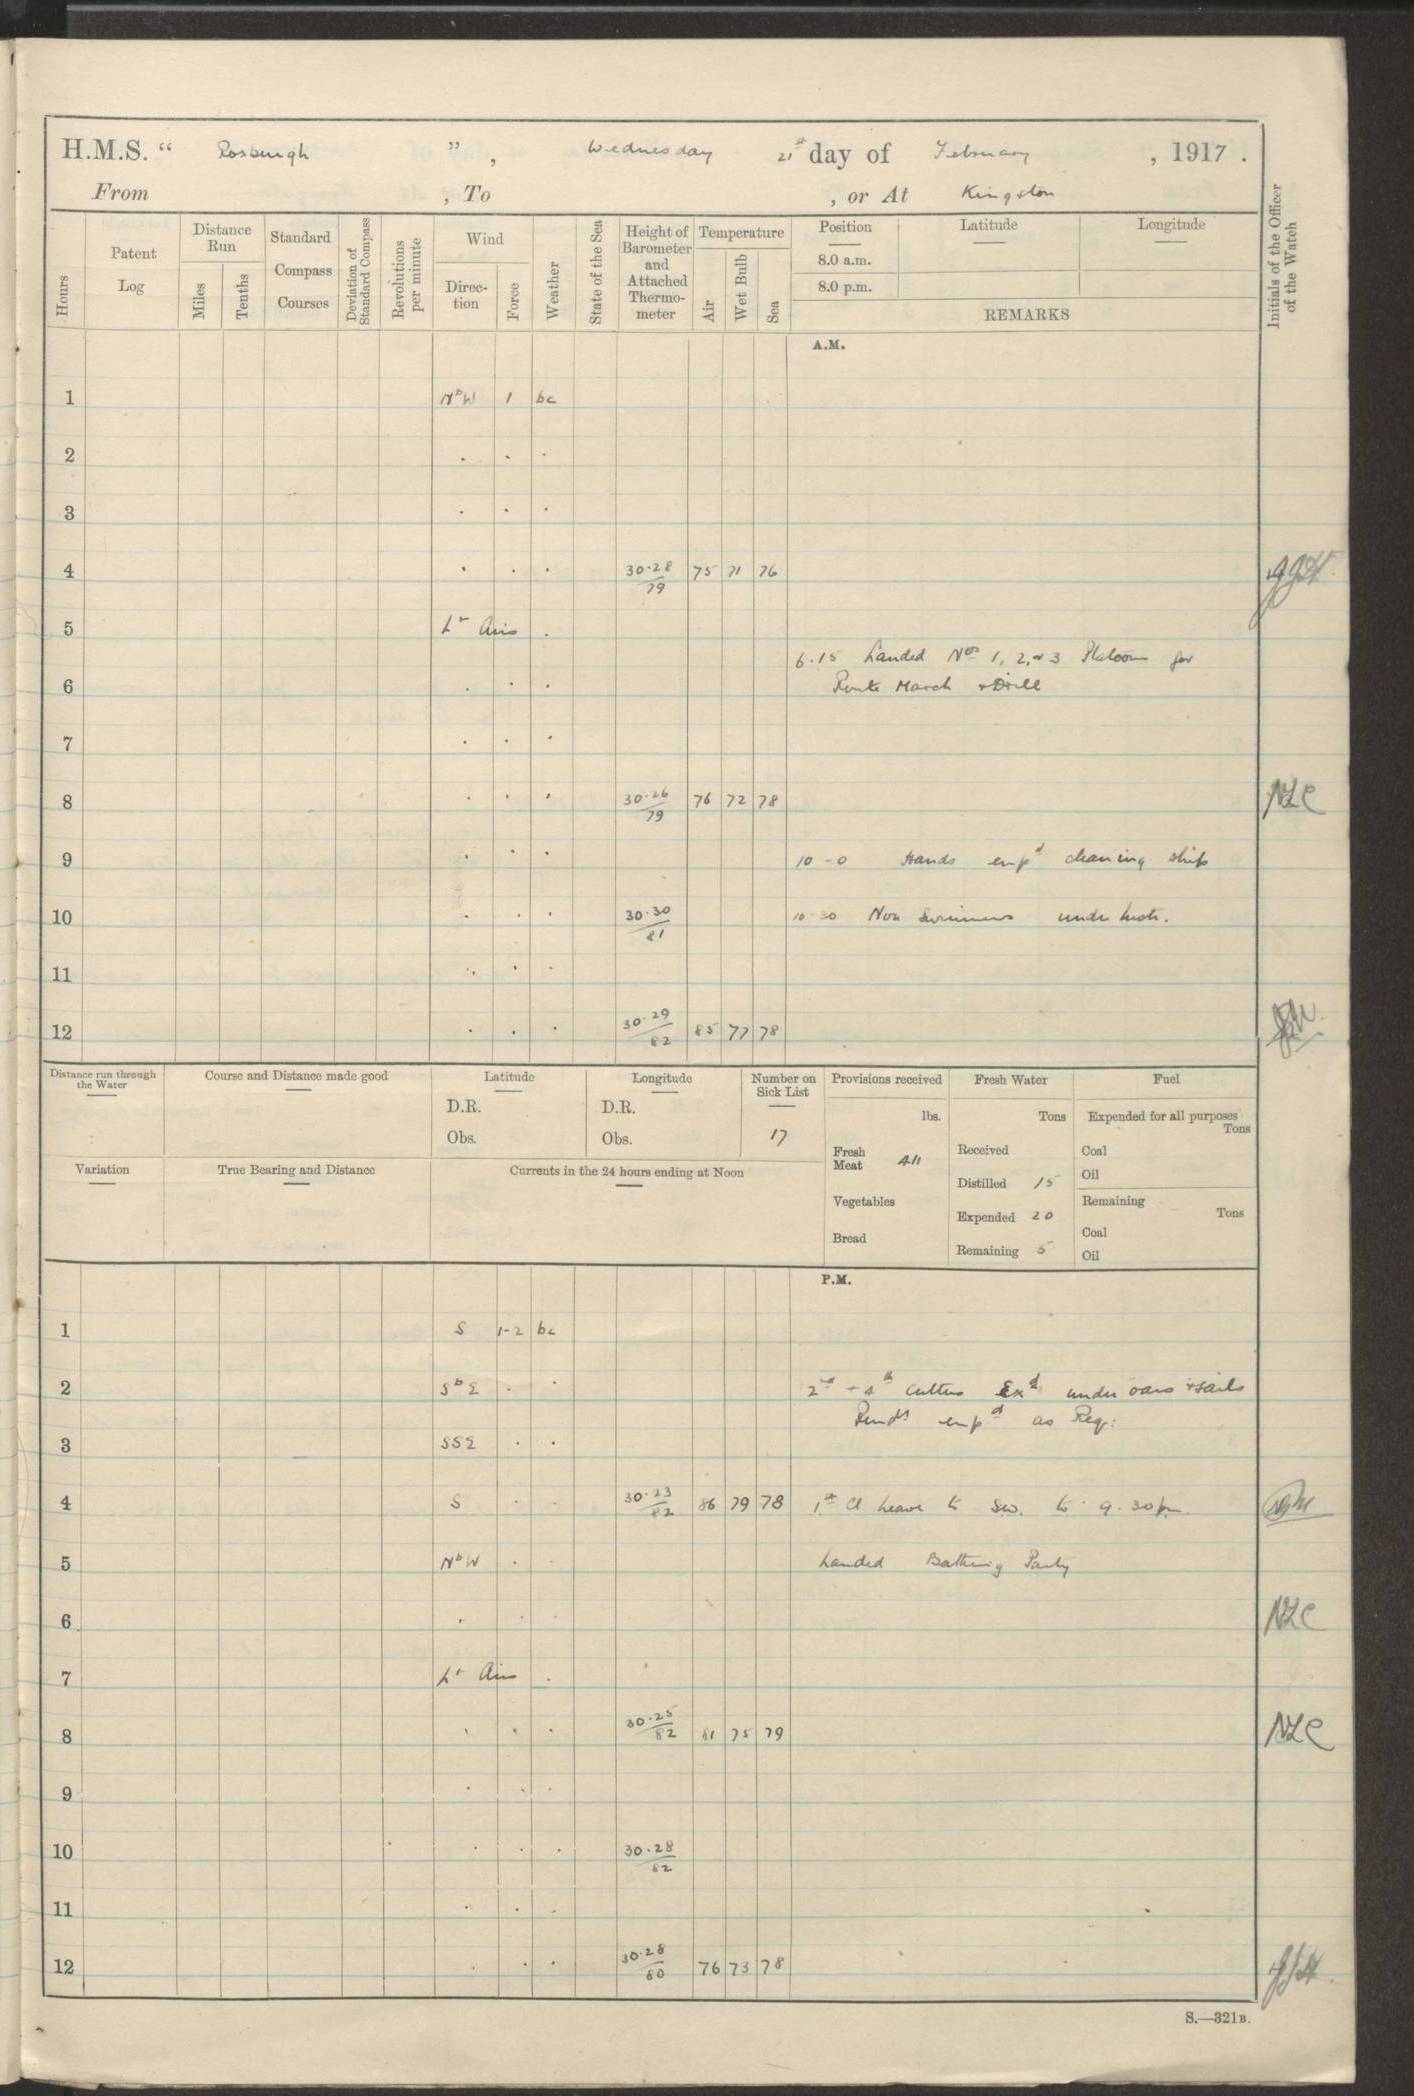 H.M.S. “ Roxburgh ”, Wednesday 21st day of February, 1917.
From , To , or At Kingston
Hours
Patent Log
Distance Run
Miles
Tenths
Standard Compass Courses
Deviation of Standard Compass
Revolutions per minute
Wind
Direction
Force
Weather
State of the Sea
Height of Barometer and Attached Thermometer
Temperature
Air
Wet Bulb
Sea
Position
8.0 a.m.
8.0 p.m.
Latitude
Longitude
REMARKS
Initials of the Officer of the Watch
A.M.
1 NbW 1 bc
2 . . .
3 . . .
4 . . . 30.28/79 75 71 76
5 Lt Airs .
6.15 Landed Nos 1, 2, & 3 Platoons for
6 . . . Route March & Drill
7 . . .
8 . . . 30.26/79 76 72 78 NLC
9 . . . 10-0 Hands empd cleaning ship
10 . . . 30.30/81 10-30 Non Swimmers under Instr.
11 . . .
12 . . . 30.29/82 85 77 78
Distance run through the Water
Course and Distance made good
Latitude
D.R.
Obs.
Longitude
D.R.
Obs.
Number on Sick List
17
Provisions received
lbs.
Fresh Meat 411
Vegetables
Bread
Fresh Water
Tons
Received
Distilled 15
Expended 20
Remaining 5
Fuel
Expended for all purposes
Tons
Coal
Oil
Remaining
Tons
Coal
Oil
Variation
True Bearing and Distance
Currents in the 24 hours ending at Noon
P.M.
1 S 1-2 bc
2 SbE . . 2nd + 4th Cutters Exd under oars & sails
Remdr empd as Req:
3 SSE . .
4 S . . 30.23/82 86 79 78 1st Cl Leave to Sea. to 9.30pm.
5 NbW . . Landed Bathing Party
6 . . . NLC
7 Lt Airs .
8 . . . 30.25/82 81 75 79 NLC
9 . . .
10 . . . 30.28/82
11 . . .
12 . . . 30.28/80 76 73 78
S.—321B.